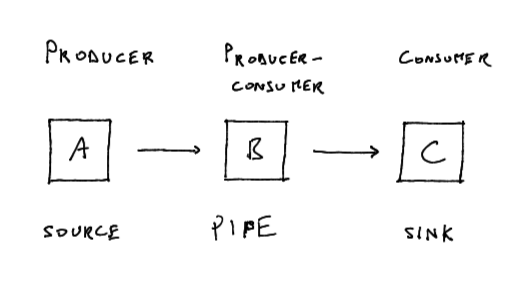 PRODUCER
PRODUCER-
CONSUMER
CONSUMER
A
B
C
SOURCE
PIPE
SINK